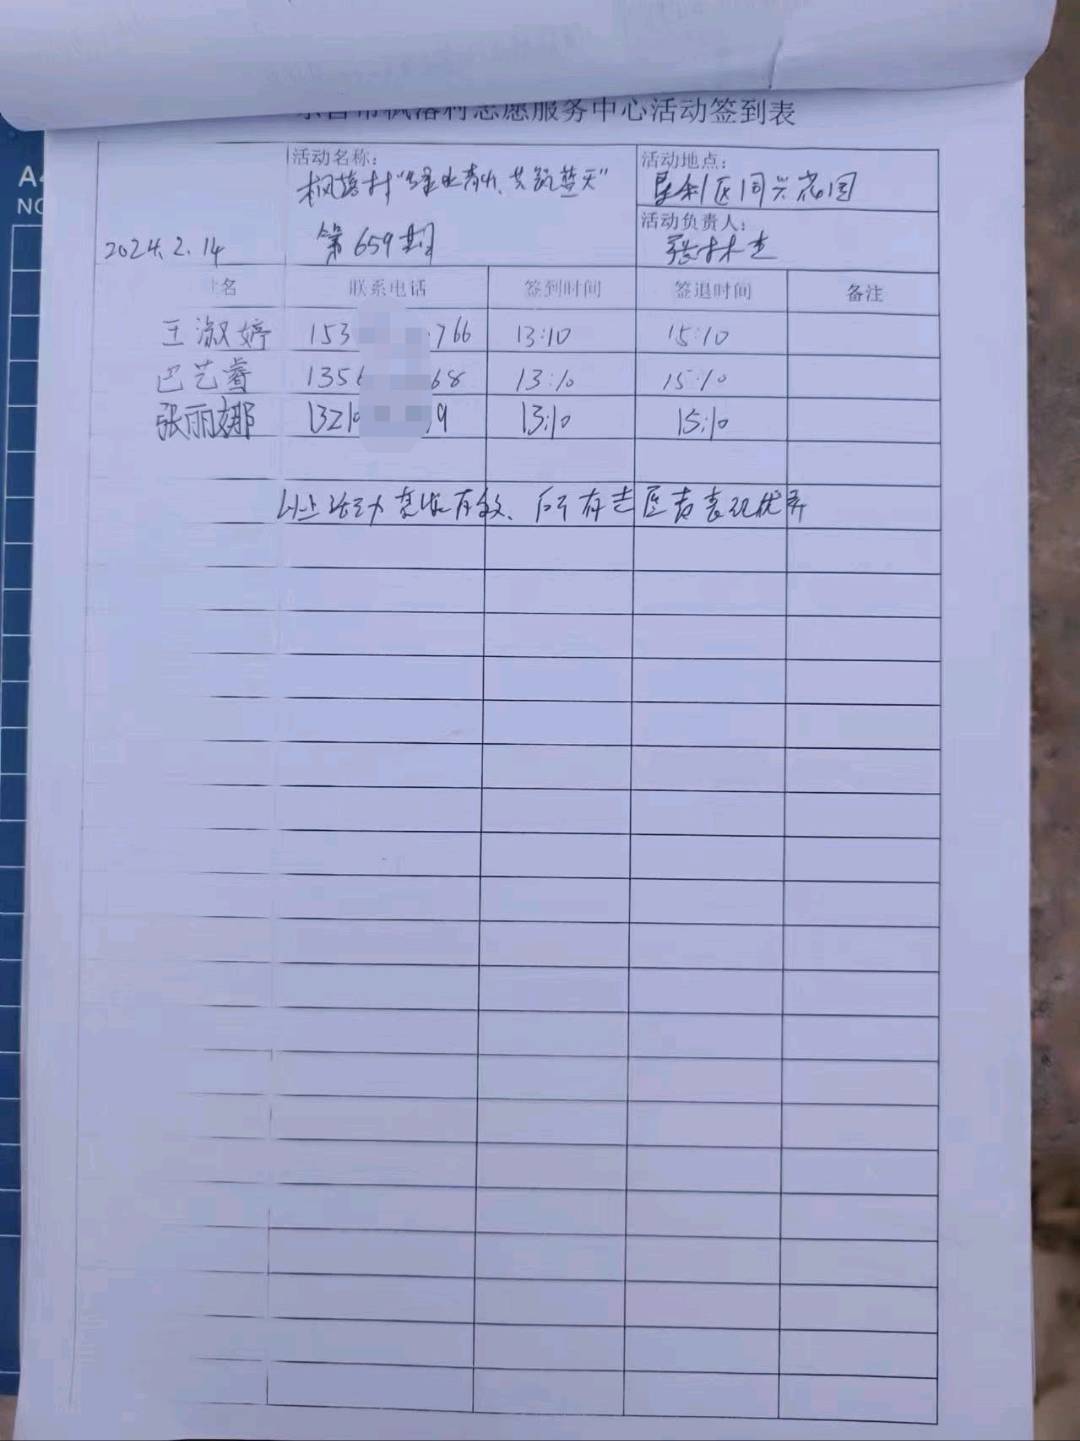 A4
NO
服务中心活动签到表
活动名称：
枫落村“绿水青山、共筑蓝天”
第659期
活动地点：
垦利区同兴花园
活动负责人：
张林杰
2024.2.14
名 联系电话 签到时间 签退时间 备注
王淑婷 153 766 13:10 15:10
巴艺睿 135 68 13:10 15:10
张丽娜 132 9 13:10 15:10
以上活动真实有效、所有志愿者表现优秀